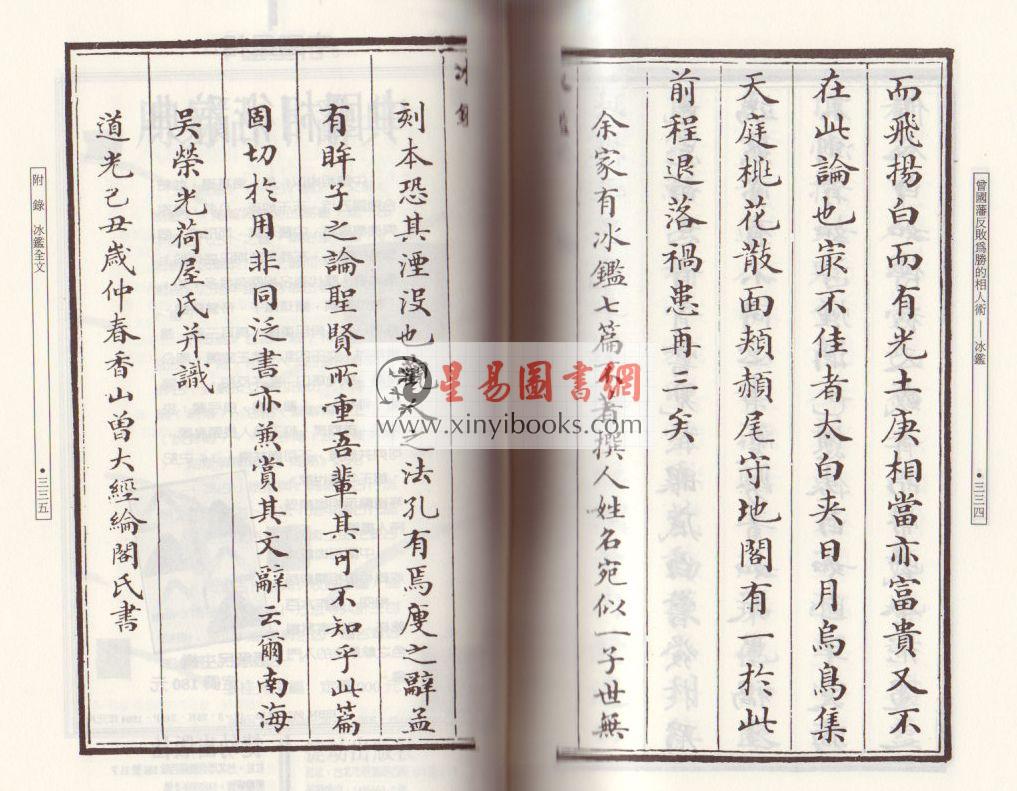 曾國藩反敗爲勝的相人術──冰鑑
•三三四
而飛揚白而有光土庚相當亦富貴又不
在此論也㝡不佳者太白夹日月烏鳥集
天庭桃花散面頰赬尾守地閣有一於此
前程退落禍患再三矣
余家有冰鑑七篇不著撰人姓名宛似一子世無
冰鑑
刻本恐其湮没也觀人之法孔有焉廋之辭孟
有眸子之論聖賢所重吾輩其可不知乎此篇
固切於用非同泛書亦兼賞其文辭云爾南海
吳榮光荷屋氏并識
道光己丑歲仲春香山曾大經綸閣氏書
附錄 冰鑑全文
•三三五
星易圖書網
www.xinyibooks.com